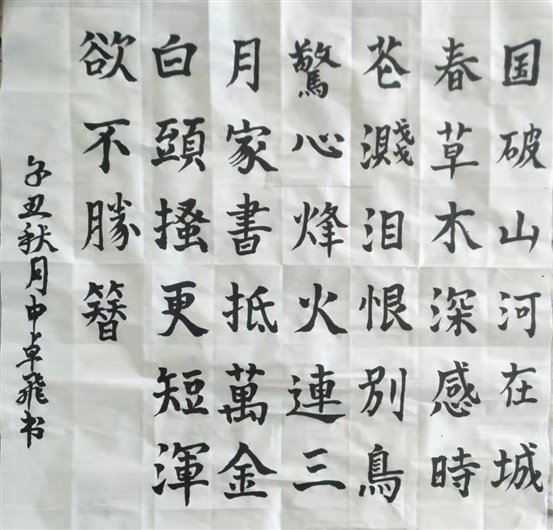 国破山河在城
春草木深感時
苍溅泪恨别鳥
驚心烽火連三
月家書抵萬金
白頭搔更短渾
欲不勝簪
辛丑秋月申卓飛书